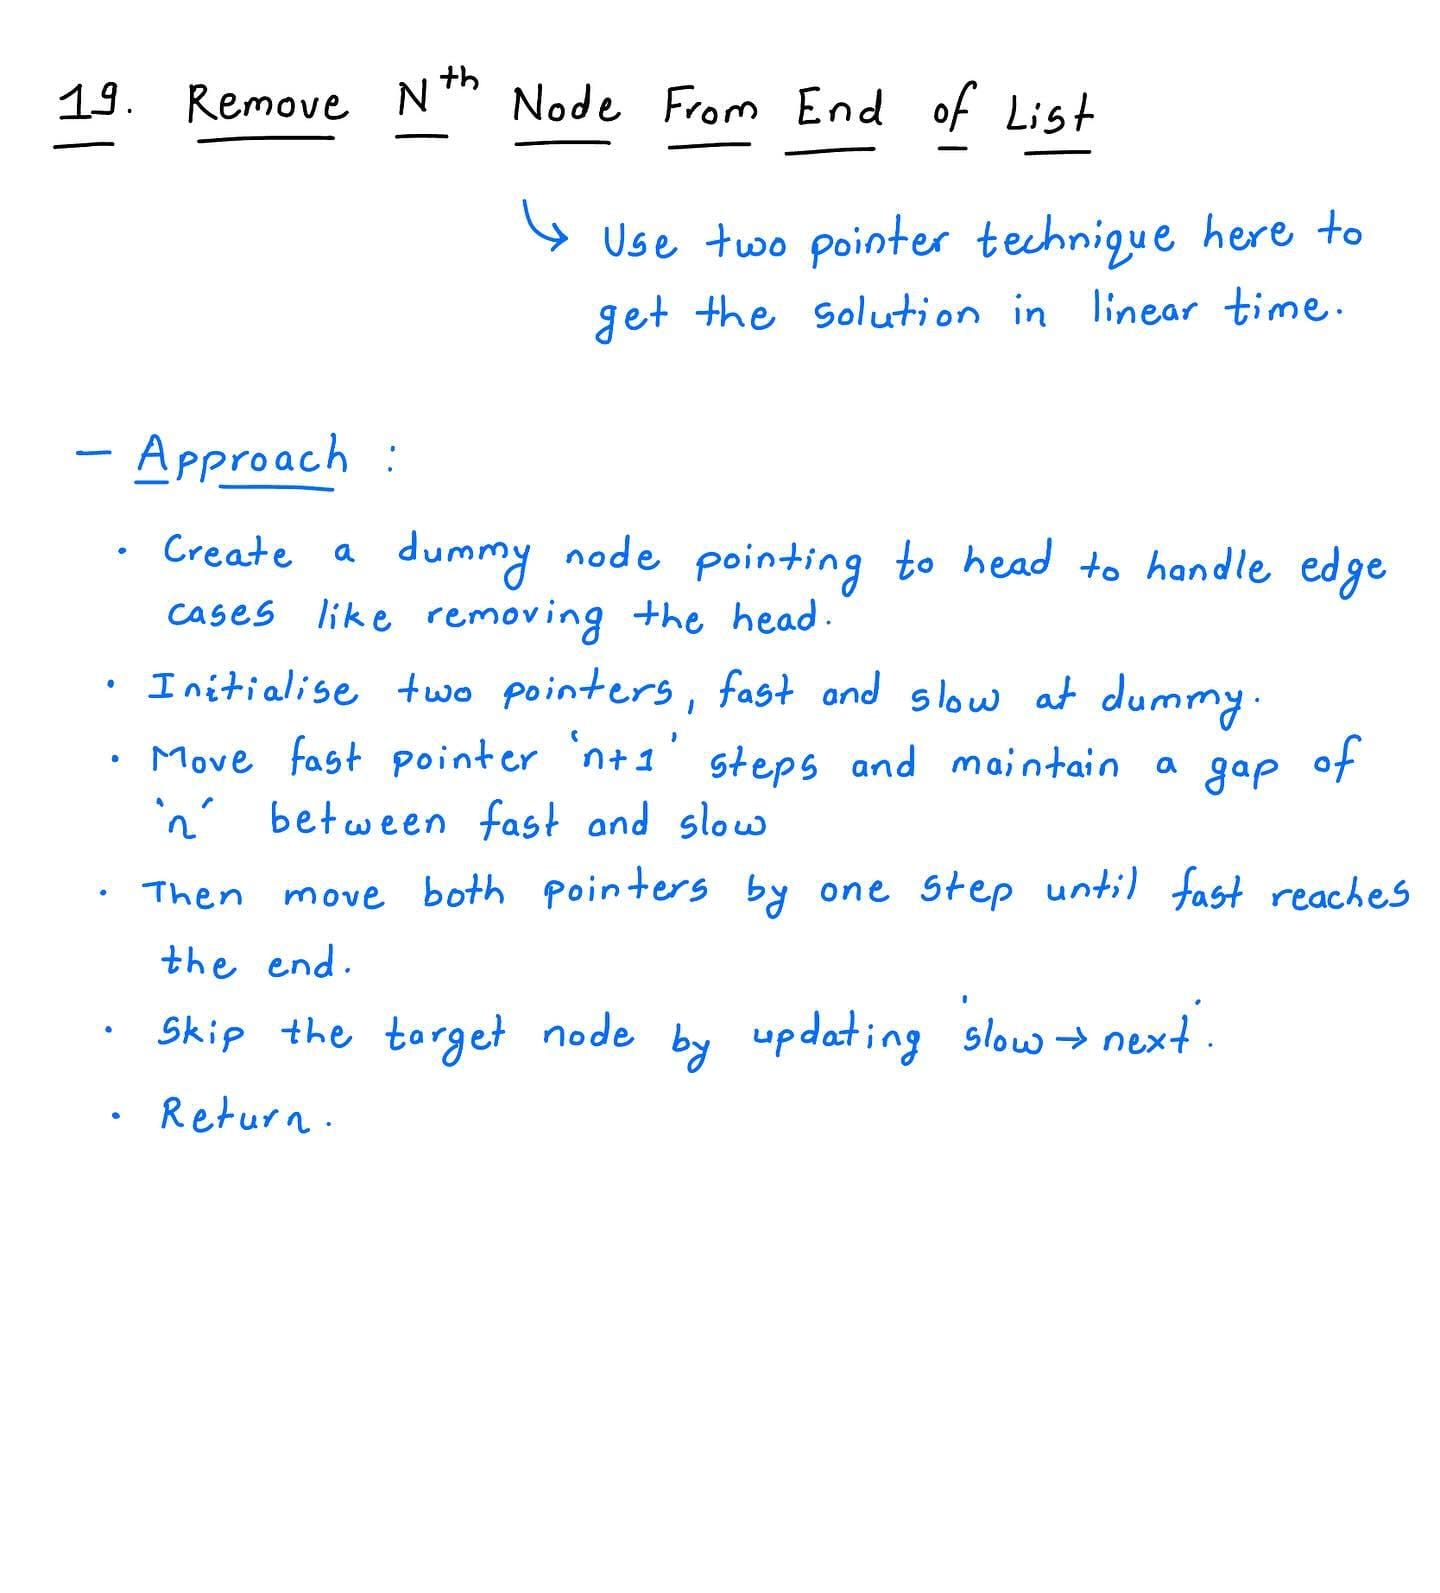 19. Remove Nth Node From End of List
↳ Use two pointer technique here to
get the solution in linear time.
- Approach :
• Create a dummy node pointing to head to handle edge
cases like removing the head.
• Initialise two pointers, fast and slow at dummy.
• Move fast pointer 'n+1' steps and maintain a gap of
'n' between fast and slow
• Then move both pointers by one step until fast reaches
the end.
• Skip the target node by updating 'slow → next'.
• Return.